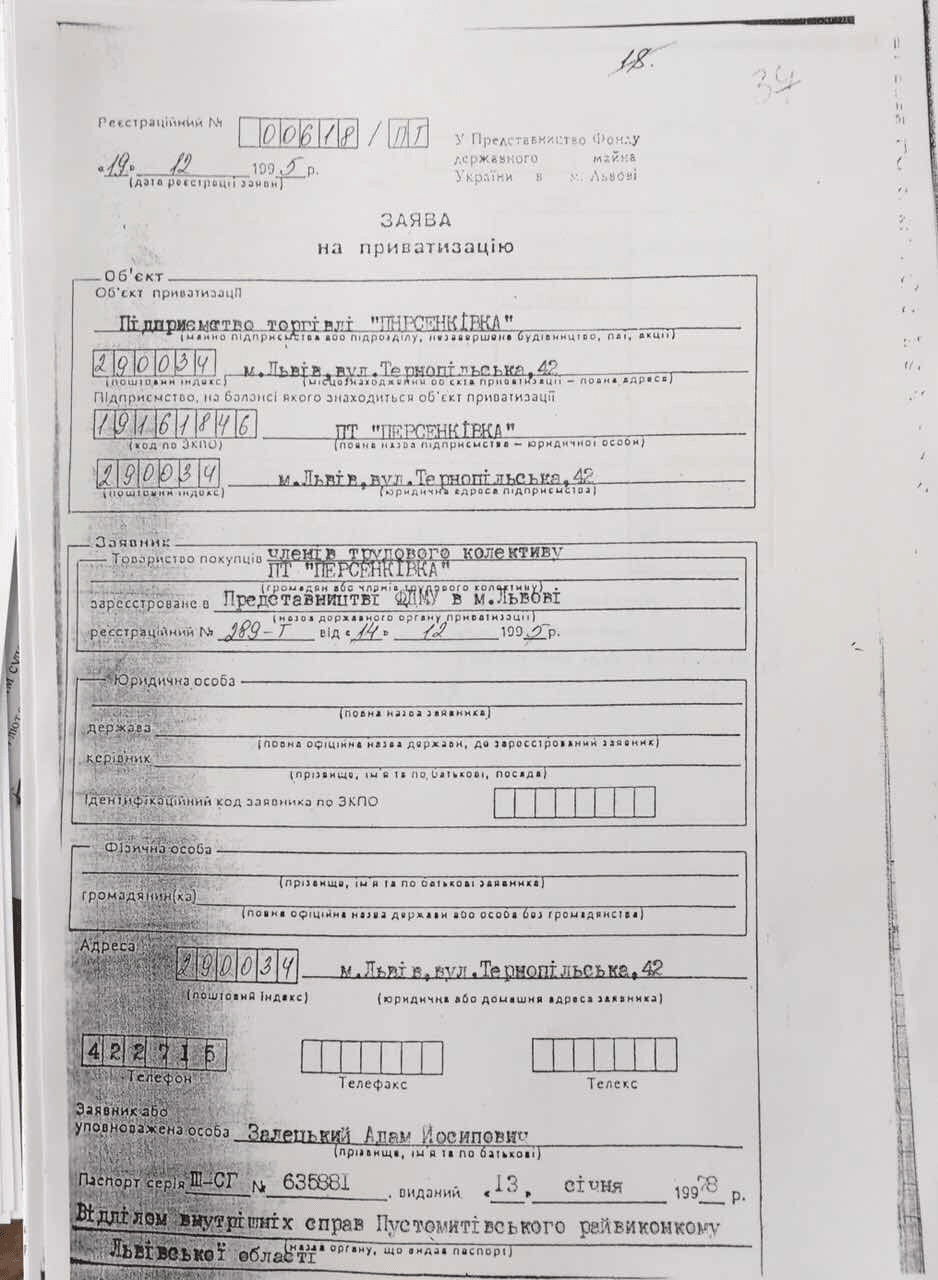 18.
34
Реєстраційний № 00618 / ПТ
«19» 12 1995 р.
(дата реєстрації заяви)
У Представництво Фонду
державного майна
України в м. Львові
ЗАЯВА
на приватизацію
Об'єкт
Об'єкт приватизації
Підприємство торгівлі "ПЕРСЕНКІВКА"
(майно підприємства або підрозділу, незавершене будівництво, паї, акції)
290034 м.Львів,вул.Тернопільська,42
(поштовий індекс) (місцезнаходження об'єкта приватизації – повна адреса)
Підприємство, на балансі якого знаходиться об'єкт приватизації
19161846 ПТ "ПЕРСЕНКІВКА"
(код по ЗКПО) (повна назва підприємства – юридичної особи)
290034 м.Львів,вул.Тернопільська,42
(поштовий індекс) (юридична адреса підприємства)
Заявник
Товариство покупців членів трудового колективу
ПТ "ПЕРСЕНКІВКА"
(громадян або членів трудового колективу)
зареєстроване в Представництві ФДМУ в м.Львові
(назва державного органу приватизації)
реєстраційний № 289-Т від «14» 12 1995 р.
Юридична особа
(повна назва заявника)
держава
(повна офіційна назва держави, де зареєстрований заявник)
керівник
(прізвище, ім'я та по батькові, посада)
Ідентифікаційний код заявника по ЗКПО
Фізична особа
(прізвище, ім'я та по батькові заявника)
громадянин(ка)
(повна офіційна назва держави або особа без громадянства)
Адреса
290034 м.Львів,вул.Тернопільська,42
(поштовий індекс) (юридична або домашня адреса заявника)
422715
Телефон Телефакс Телекс
Заявник або
уповноважена особа Залецький Адам Йосипович
(прізвище, ім'я та по батькові)
Паспорт серія ІІІ-СГ № 635881, виданий «13» січня 19978 р.
Відділом внутрішніх справ Пустомитівського райвиконкому
Львівської області (назва органу, що видав паспорт)